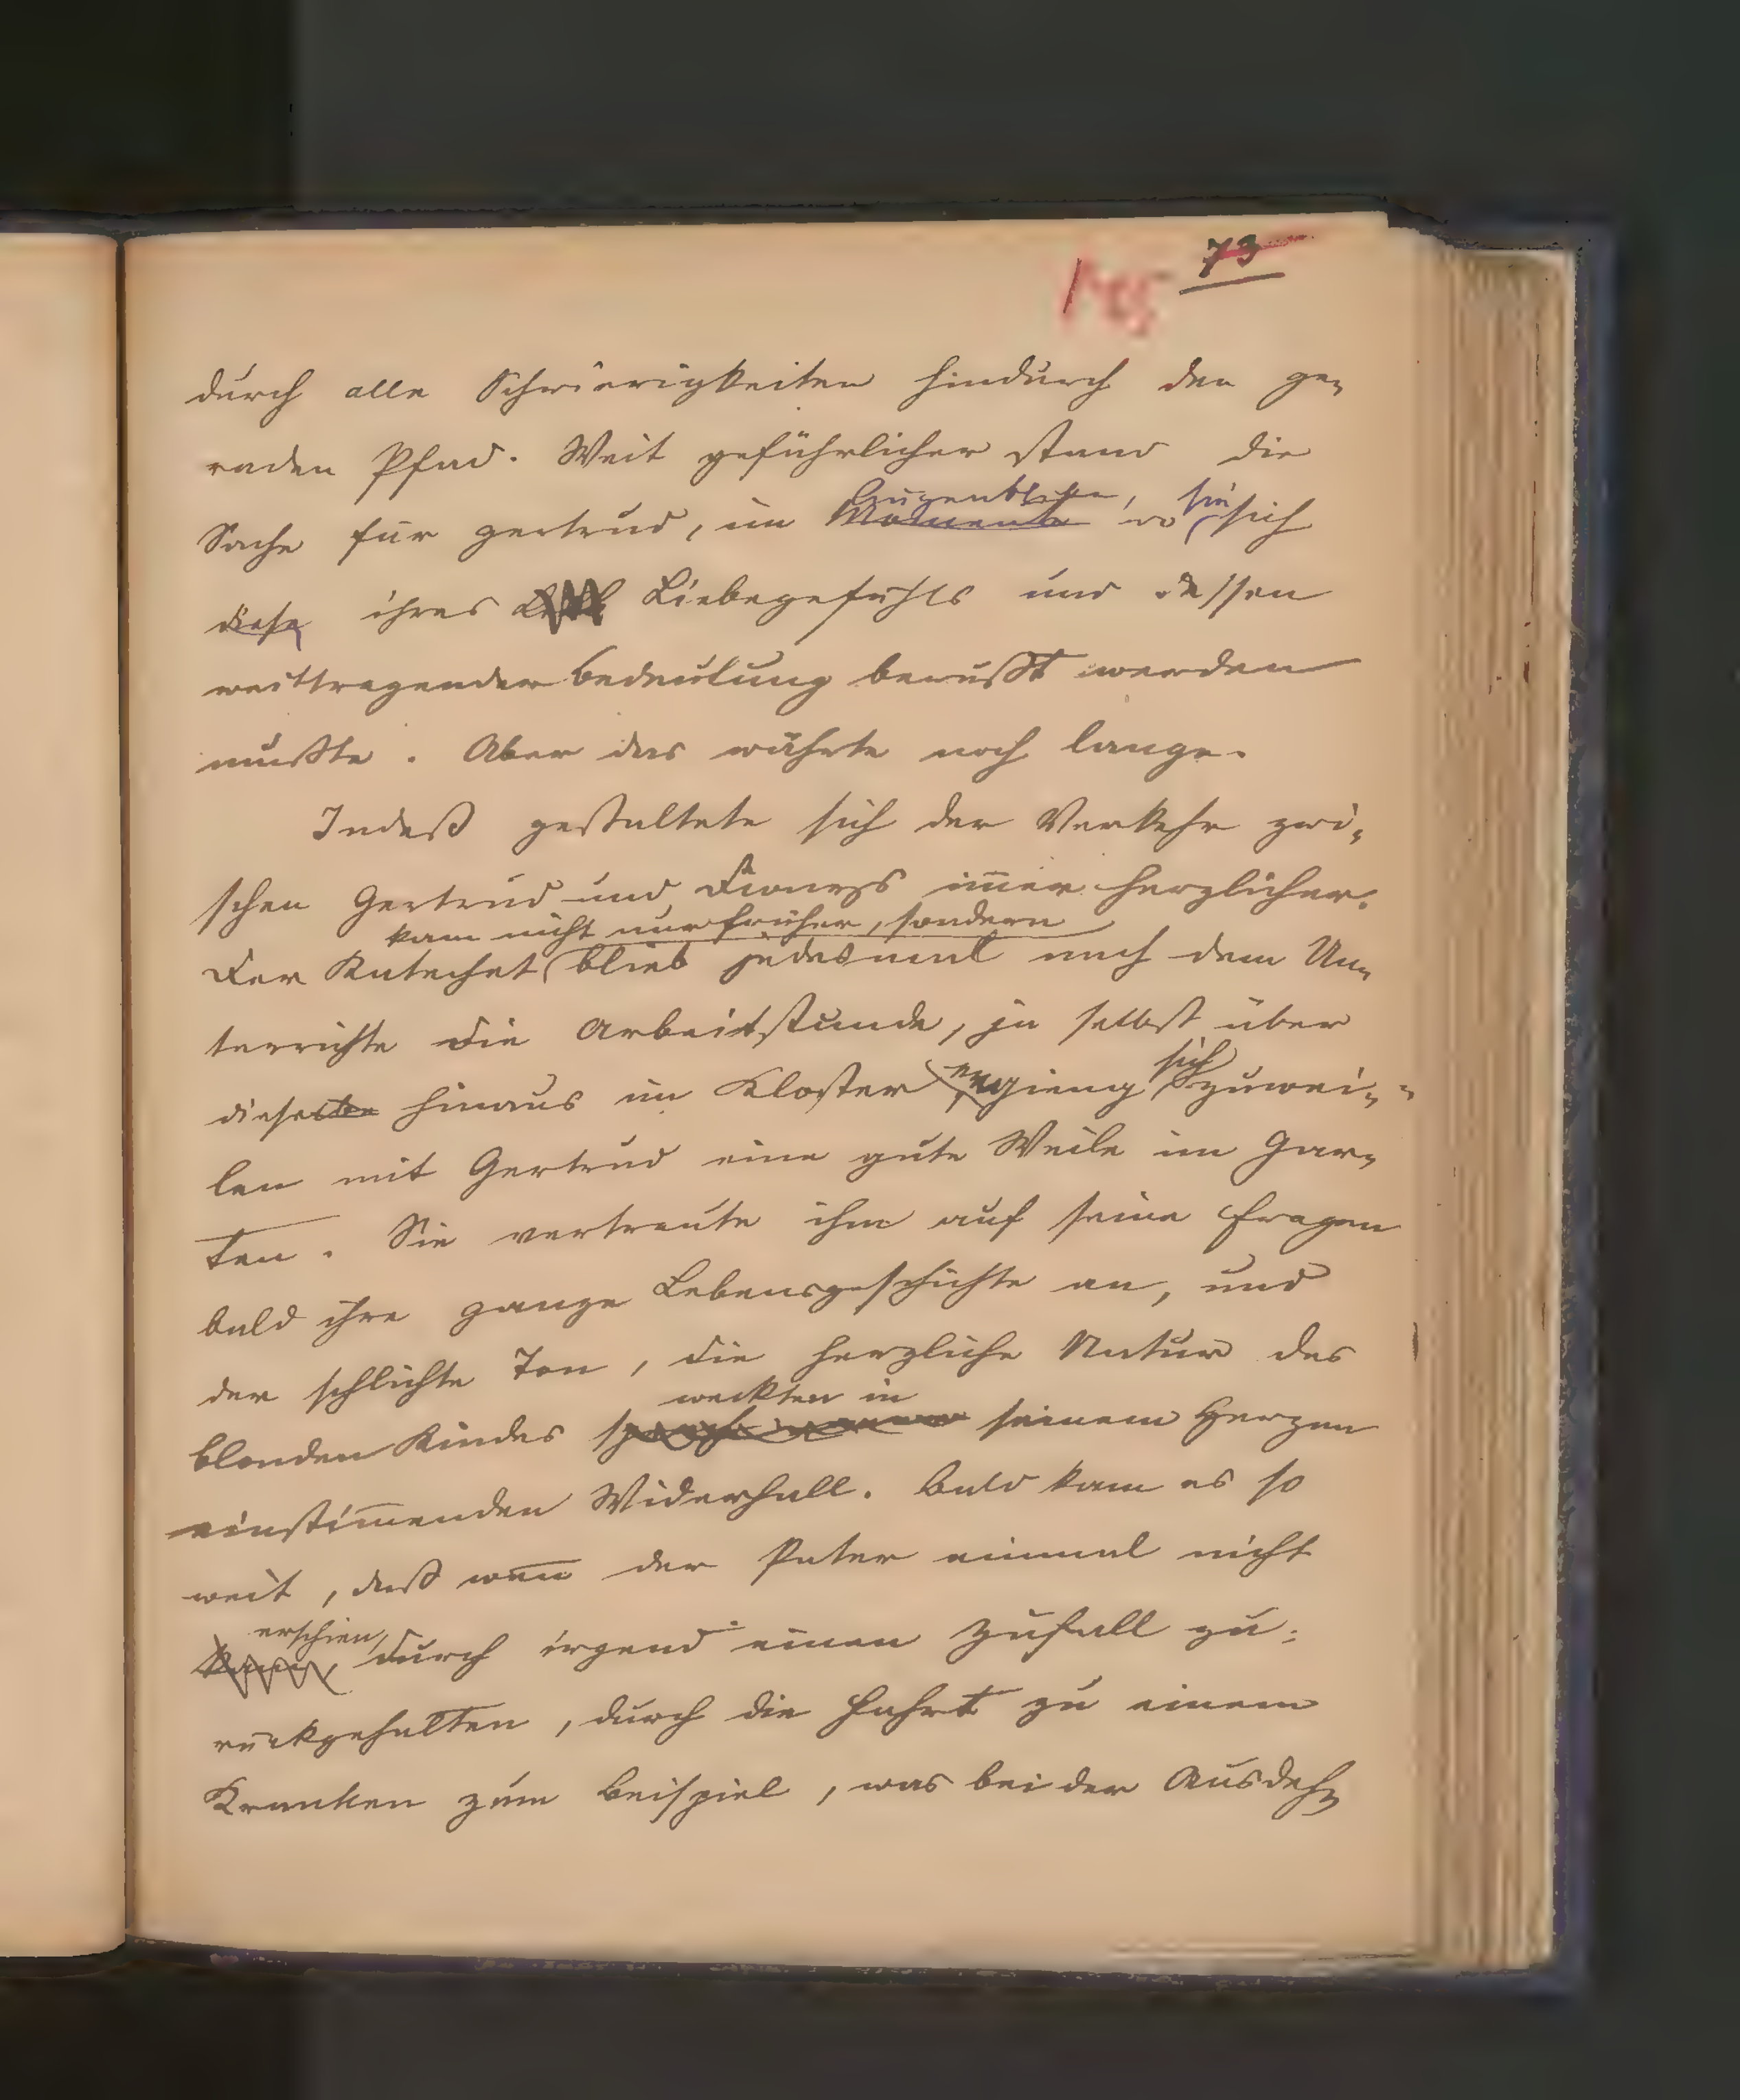 73
145
durch alle Schwierigkeiten hindurch den ge-
raden Pfad. Weit gefährlicher stand die
Augenblicke, sie
Sache für Gertrud, im Momente wo sich
diese ihres Liebegefühls und dessen
weittragender Bedeutung bewußt werden
mußte. Aber das währte noch lange.
Indeß gestaltete sich der Verkehr zwi-
schen Gertrud und Dionys im̄er herzlicher.
kam nicht nur früher, sondern
Der Katechet blieb jedesmal nach dem Un-
terrichte die Arbeitstunde, ja selbst über
sich
dieselbe hinaus im Kloster ergieng zuwei-
len mit Gertrud eine gute Weile im Gar-
ten. Sie vertraute ihm auf seine Fragen
bald ihre ganze Lebensgeschichte an, und
der schlichte Ton, die herzliche Natur des
weckten in
blonden Kindes seinem Herzen
einstim̄enden Widerhall. Bald kam es so
weit, daß wen̄ der Pater einmal nicht
erschien,
kam, durch irgend einen Zufall zu-
rückgehalten, durch die Fahrt zu einem
Kranken zum Beispiel, was bei der Ausdeh-